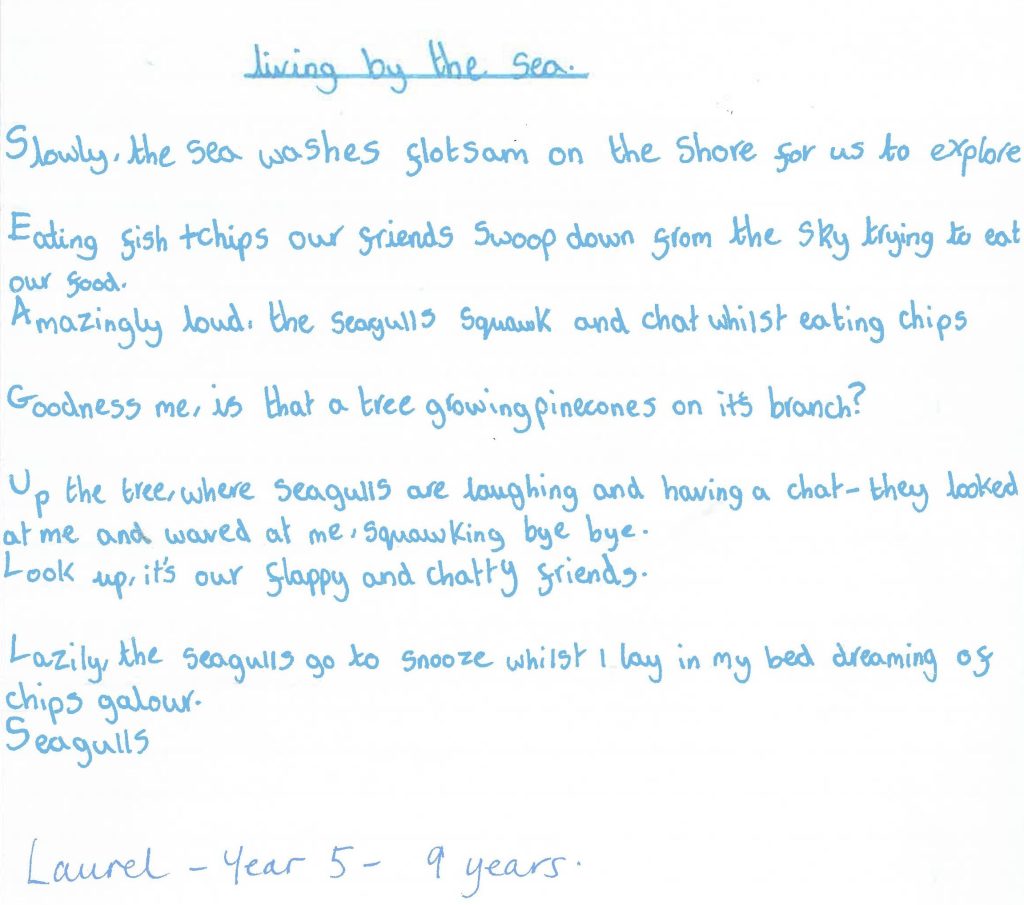 living by the sea.
Slowly, the sea washes flotsam on the shore for us to explore
Eating fish + chips our friends swoop down from the sky trying to eat
our food.
Amazingly loud, the seagulls squawk and chat whilst eating chips
Goodness me, is that a tree growing pinecones on it's branch?
Up the tree, where seagulls are laughing and having a chat - they looked
at me and waved at me, squawking bye bye.
Look up, it's our flappy and chatty friends.
Lazily, the seagulls go to snooze whilst I lay in my bed dreaming of
chips galour.
Seagulls
Laurel - Year 5 - 9 years.